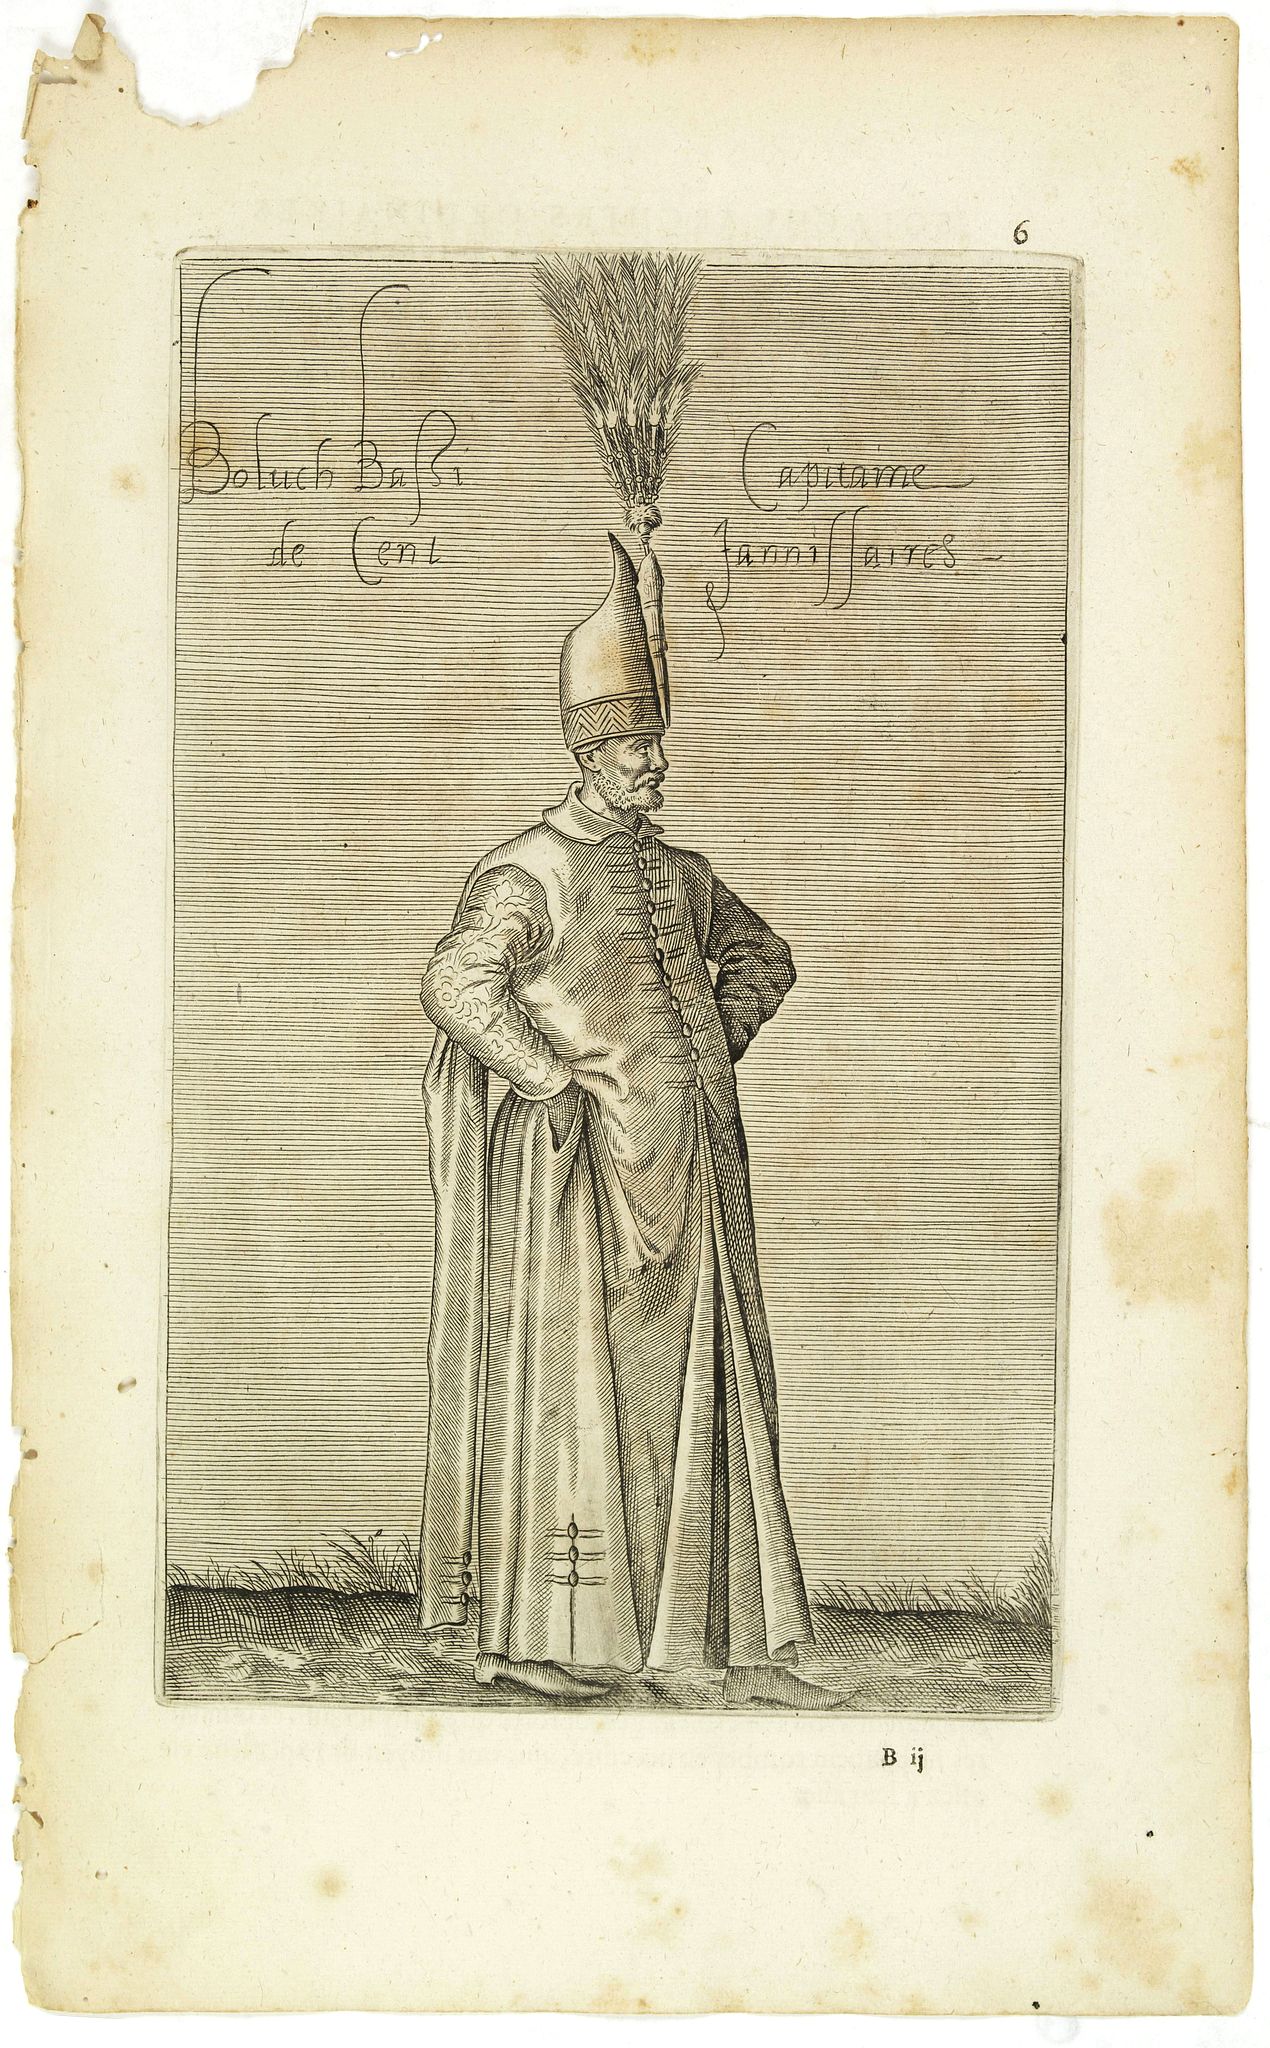 6
Boluch Baſsi Capitaine
de Cent Janniſſaires
B ij